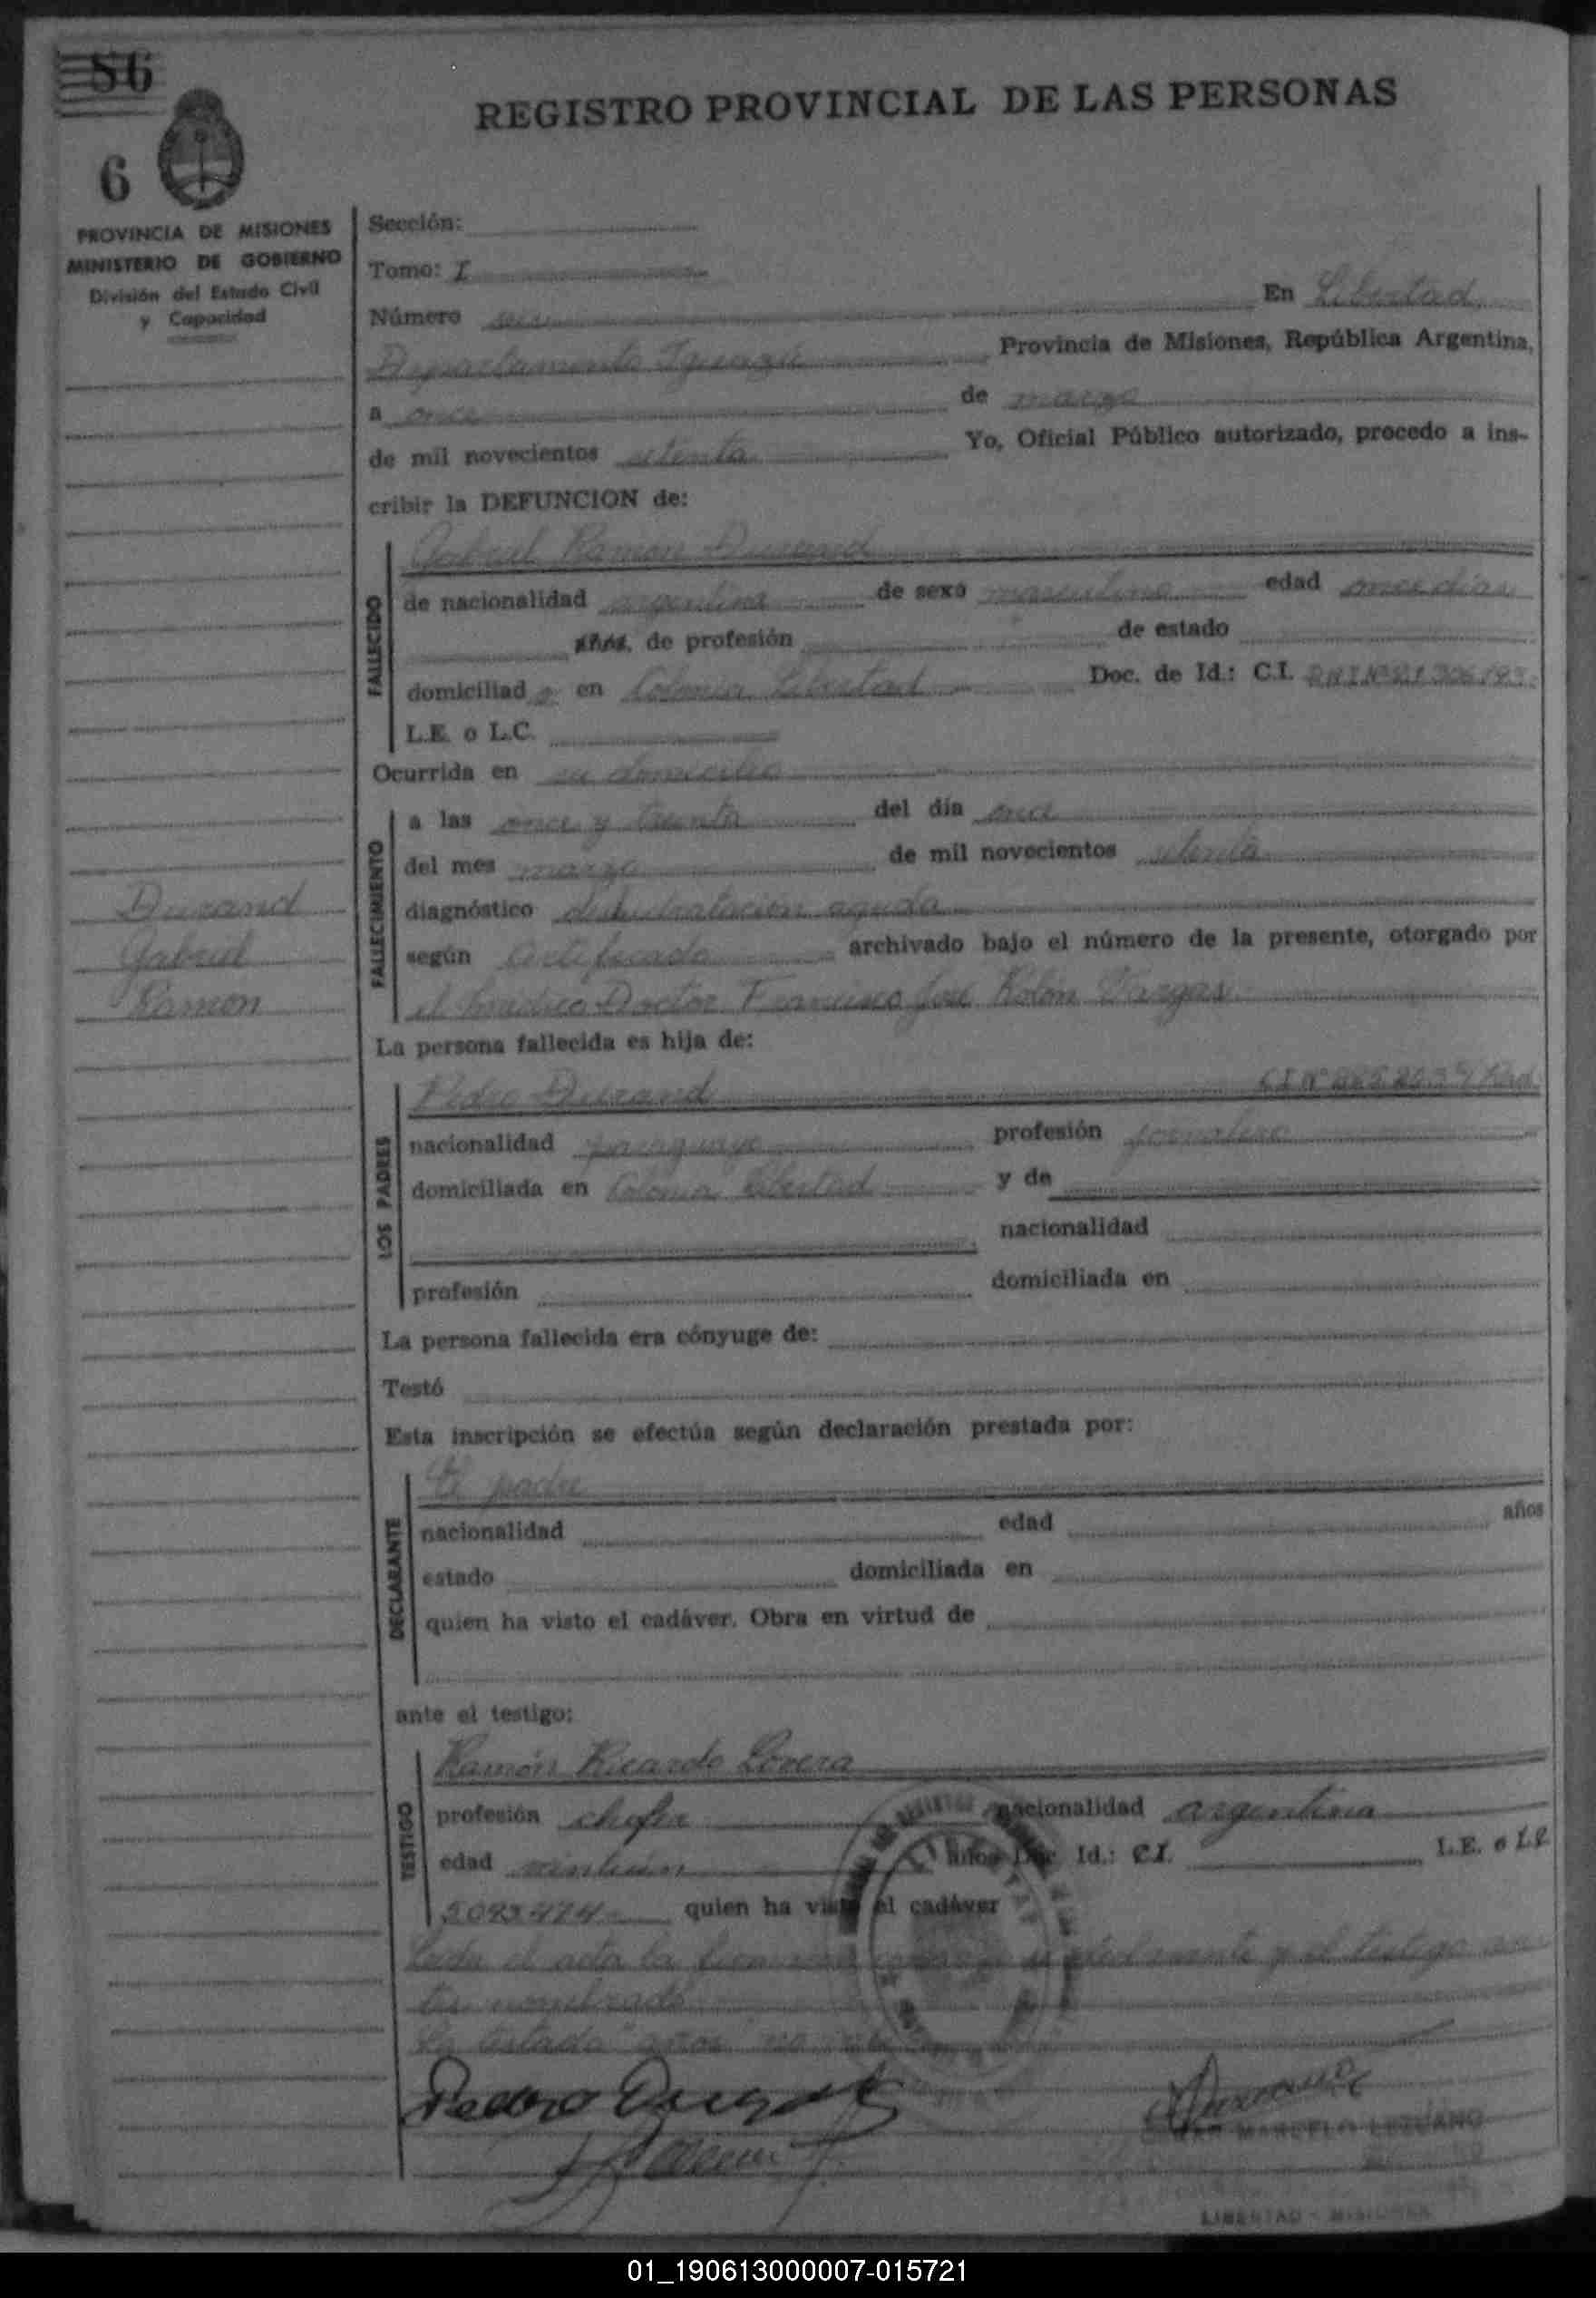 86
REGISTRO PROVINCIAL DE LAS PERSONAS
6
PROVINCIA DE MISIONES
MINISTERIO DE GOBIERNO
División del Estado Civil
y Capacidad
Sección:
Tomo: I
En Libertad
Número seis
Departamento Iguazú Provincia de Misiones, República Argentina,
a once de marzo
de mil novecientos setenta Yo, Oficial Público autorizado, procedo a ins-
cribir la DEFUNCION de:
FALLECIDO
Gabriel Ramon Durand
de nacionalidad argentina de sexo masculino edad once días
años, de profesión de estado
domiciliad o en Colonia Libertad Doc. de Id.: C.I. DNI Nº 21.306.193
L.E. o L.C.
Ocurrida en su domicilio
FALLECIMIENTO
a las once y treinta del día once
del mes marzo de mil novecientos setenta
diagnóstico deshidratación aguda
según certificado archivado bajo el número de la presente, otorgado por
el médico Doctor Francisco José Rolón Vargas
Durand
Gabriel
Ramon
La persona fallecida es hija de:
LOS PADRES
Pedro Durand C.I. Nº
nacionalidad paraguaya profesión jornalero
domiciliada en Colonia Libertad y de
nacionalidad
profesión domiciliada en
La persona fallecida era cónyuge de:
Testó
Esta inscripción se efectúa según declaración prestada por:
DECLARANTE
El padre
nacionalidad edad años
estado domiciliada en
quien ha visto el cadáver. Obra en virtud de
ante el testigo:
TESTIGO
Ramón Ricardo Lovera
profesión chofer nacionalidad argentina
edad veintiún años Doc. Id.: C.I. L.E. o L.C.
5092474 quien ha visto el cadáver
Leida el acta la firman el declarante y el testigo an
tes nombrado
Lo testado "años" no vale
Pedro Durand
MARCELO LEZCANO
LIBERTAD - MISIONES
01_190613000007-015721